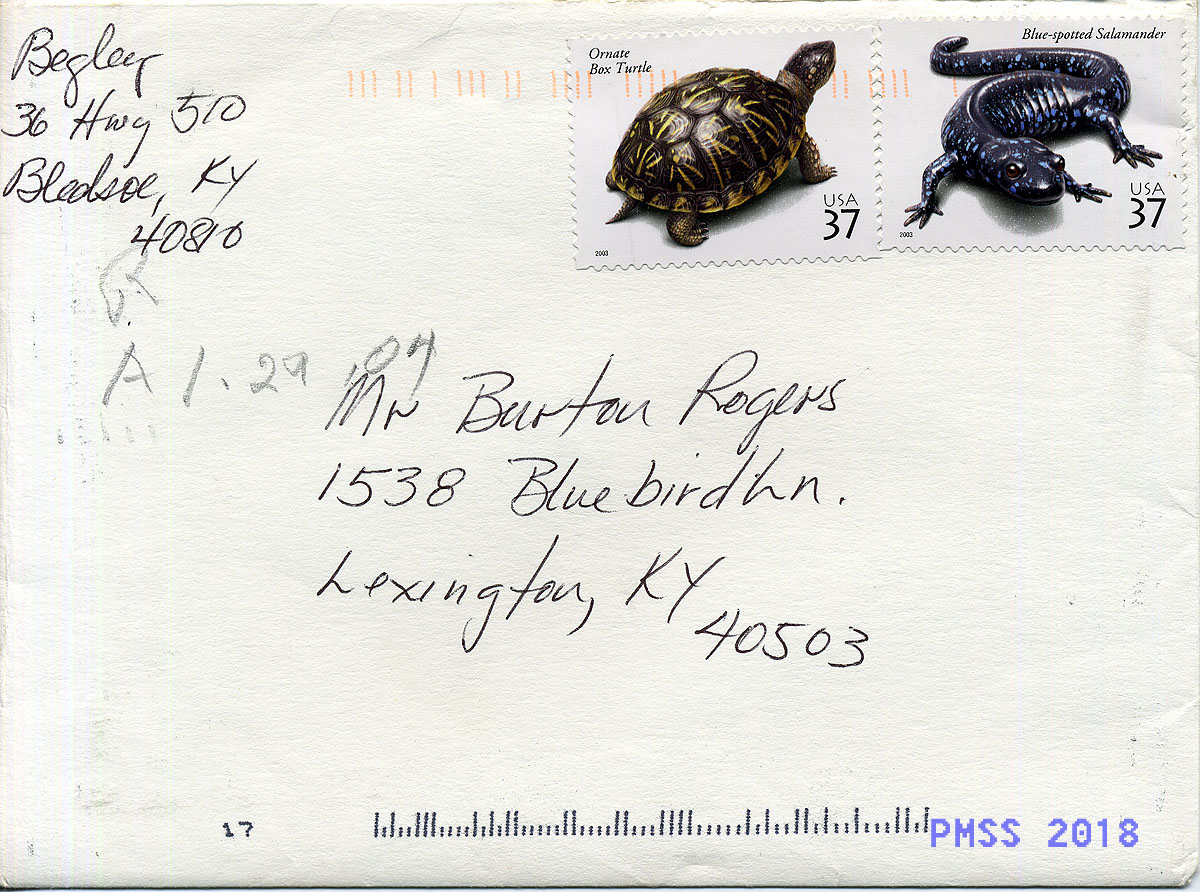 Begley
36 Hwy 510
Bledsoe, KY
40810
Ornate
Box Turtle
USA
37
2003
Blue-spotted Salamander
USA
37
2003
A 1.29.04
Mr Burton Rogers
1538 Bluebird Ln.
Lexington, KY
40503
17
PMSS 2018